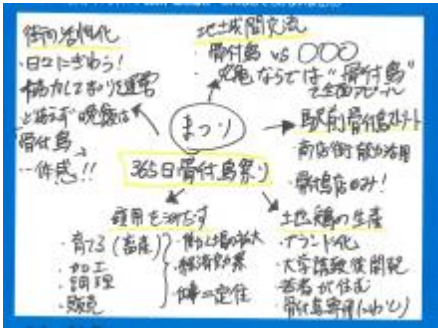 街の活性化
・日々にぎわう!
協力してまつりを運営
とりあえず晩飯は
骨付鳥
一体感!!
地域間交流
骨付鳥 VS 〇〇〇
丸亀ならでは"骨付鳥"
で全面アピール
まつり
365日骨付鳥祭り
駅前骨付鳥ストリート
・商店街
・骨付鳥店のみ!
雇用を
・育てる(畜産)
・加工
・調理
・販売
・働く場の拡大
・経済効果
・定住
土地鶏の生産
・ブランド化
・大学
・若者が住む
・骨付鳥専用(にわとり)